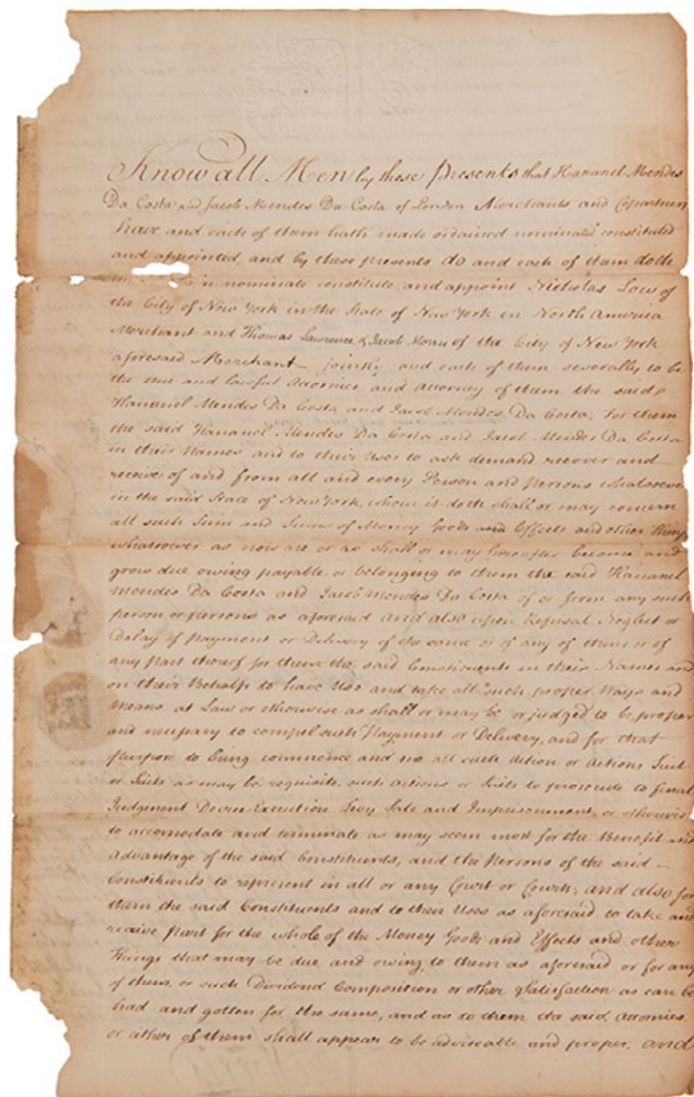 Know all Men by these Presents that Hananel Mendes
Da Costa and Jacob Mendes Da Costa of London Merchants and Copartners
have and each of them hath made ordained nominated constituted
and appointed and by these presents do and each of them doth
nominate constitute and appoint Nicholas Low of
the City of New York in the State of New York in North America
Merchant and Thomas Lawrence & Jacob Morris of the City of New York
aforesaid Merchant jointly and each of them severally to be
the true and lawful Attornies and Attorney of them the said
Hananel Mendes Da Costa and Jacob Mendes Da Costa, For them
the said Hananel Mendes Da Costa and Jacob Mendes Da Costa
in their Names and to their Uses to ask demand recover and
receive of and from all and every Person and Persons whatsoever
in the said State of New York, whom it doth shall or may concern
all such Sum and Sums of Money Goods and Effects and other Things
whatsoever as now are or as shall or may hereafter become and
grow due owing payable or belonging to them the said Hananel
Mendes Da Costa and Jacob Mendes Da Costa of or from any such
person or persons as aforesaid And also upon Refusal Neglect or
Delay of payment or Delivery of the same or of any of them or of
any Part thereof for them the said Constituents in their Names and
on their Behalfs to have Use and take all such proper Ways and
Means at Law or otherwise as shall or may be or judged to be proper
and necessary to compel such Payment or Delivery, and for that
Purpose to bring commence and sue all such Action or Actions Suit
or Suits as may be requisite, such Actions or Suits to prosecute to final
Judgement Decree Execution Levy Sale and Imprisonment, or otherwise
to accomodate and terminate as may seem most for the Benefit and
Advantage of the said Constituents, and the Persons of the said
Constituents to represent in all or any Court or Courts, and also for
them the said Constituents and to their Uses as aforesaid to take and
receive Part for the whole of the Money Goods and Effects and other
Things that may be due and owing to them as aforesaid or for any
of them, or such Dividend Composition or other Satisfaction as can be
had and gotten for the same, and as to them the said Attornies
or either of them shall appear to be adviseable and proper, and